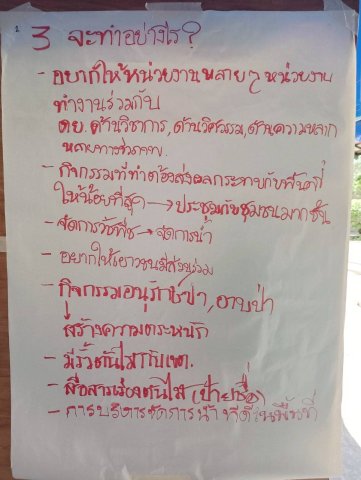 3 จะทำอย่างไร?
- อยากให้หน่วยงานหลายๆ หน่วยงาน
ทำงานร่วมกับ
ตย. ด้านวิชาการ, ด้านวิศวรรม, ด้านความหลาก
หลายทางชีวภาพ.
- กิจกรรมที่ทำต้องส่งผลกระทบกับพื้นที่
ให้น้อยที่สุด → ประชุมกับชุมชนมากขึ้น
- จัดการวัชพืช → จัดการน้ำ
- อยากให้เยาวชนมีส่วนร่วม
- กิจกรรมอนุรักษ์ป่า, อาบป่า
สร้างความตระหนัก
- มีรั้วต้นไม้กับเขต.
- สื่อสารเรื่องต้นไม้ (ป้ายชื่อ)
- การบริหารจัดการน้ำ ที่ดี ในพื้นที่